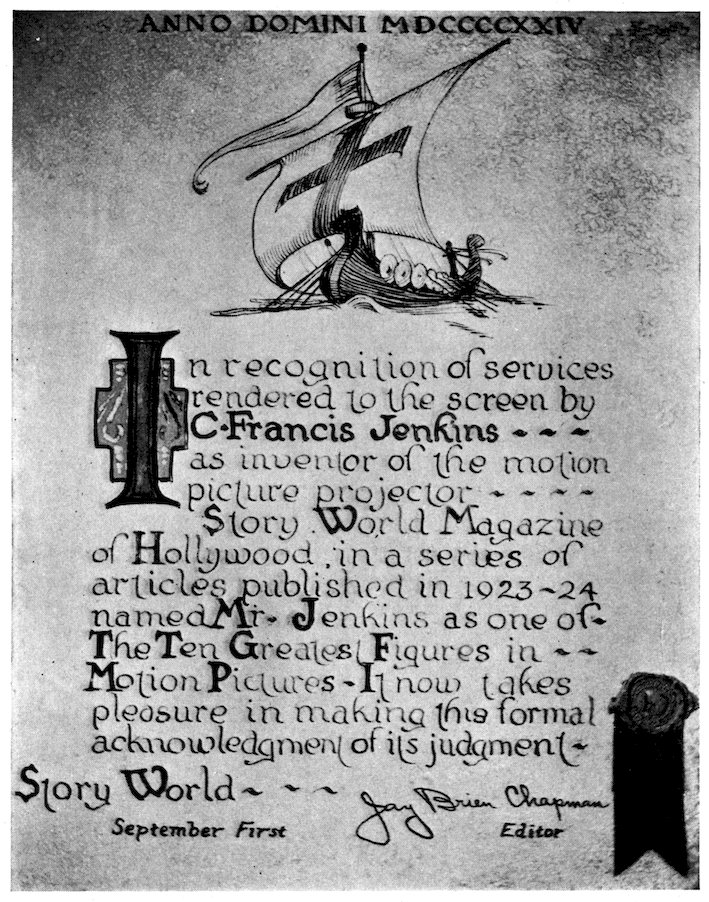 ANNO DOMINI MDCCCCXXIV
In recognition of services
rendered to the screen by
C. Francis Jenkins - ~ ~
as inventor of the motion
picture projector - - - -
Story World Magazine
of Hollywood, in a series of
articles published in 1923-24
named Mr. Jenkins as one of-
The Ten Greatest Figures in - -
Motion Pictures - It now takes
pleasure in making this formal
acknowledgment of its judgment-
Story World ~ ~ ~ ~
Jay Brien Chapman
September First
Editor